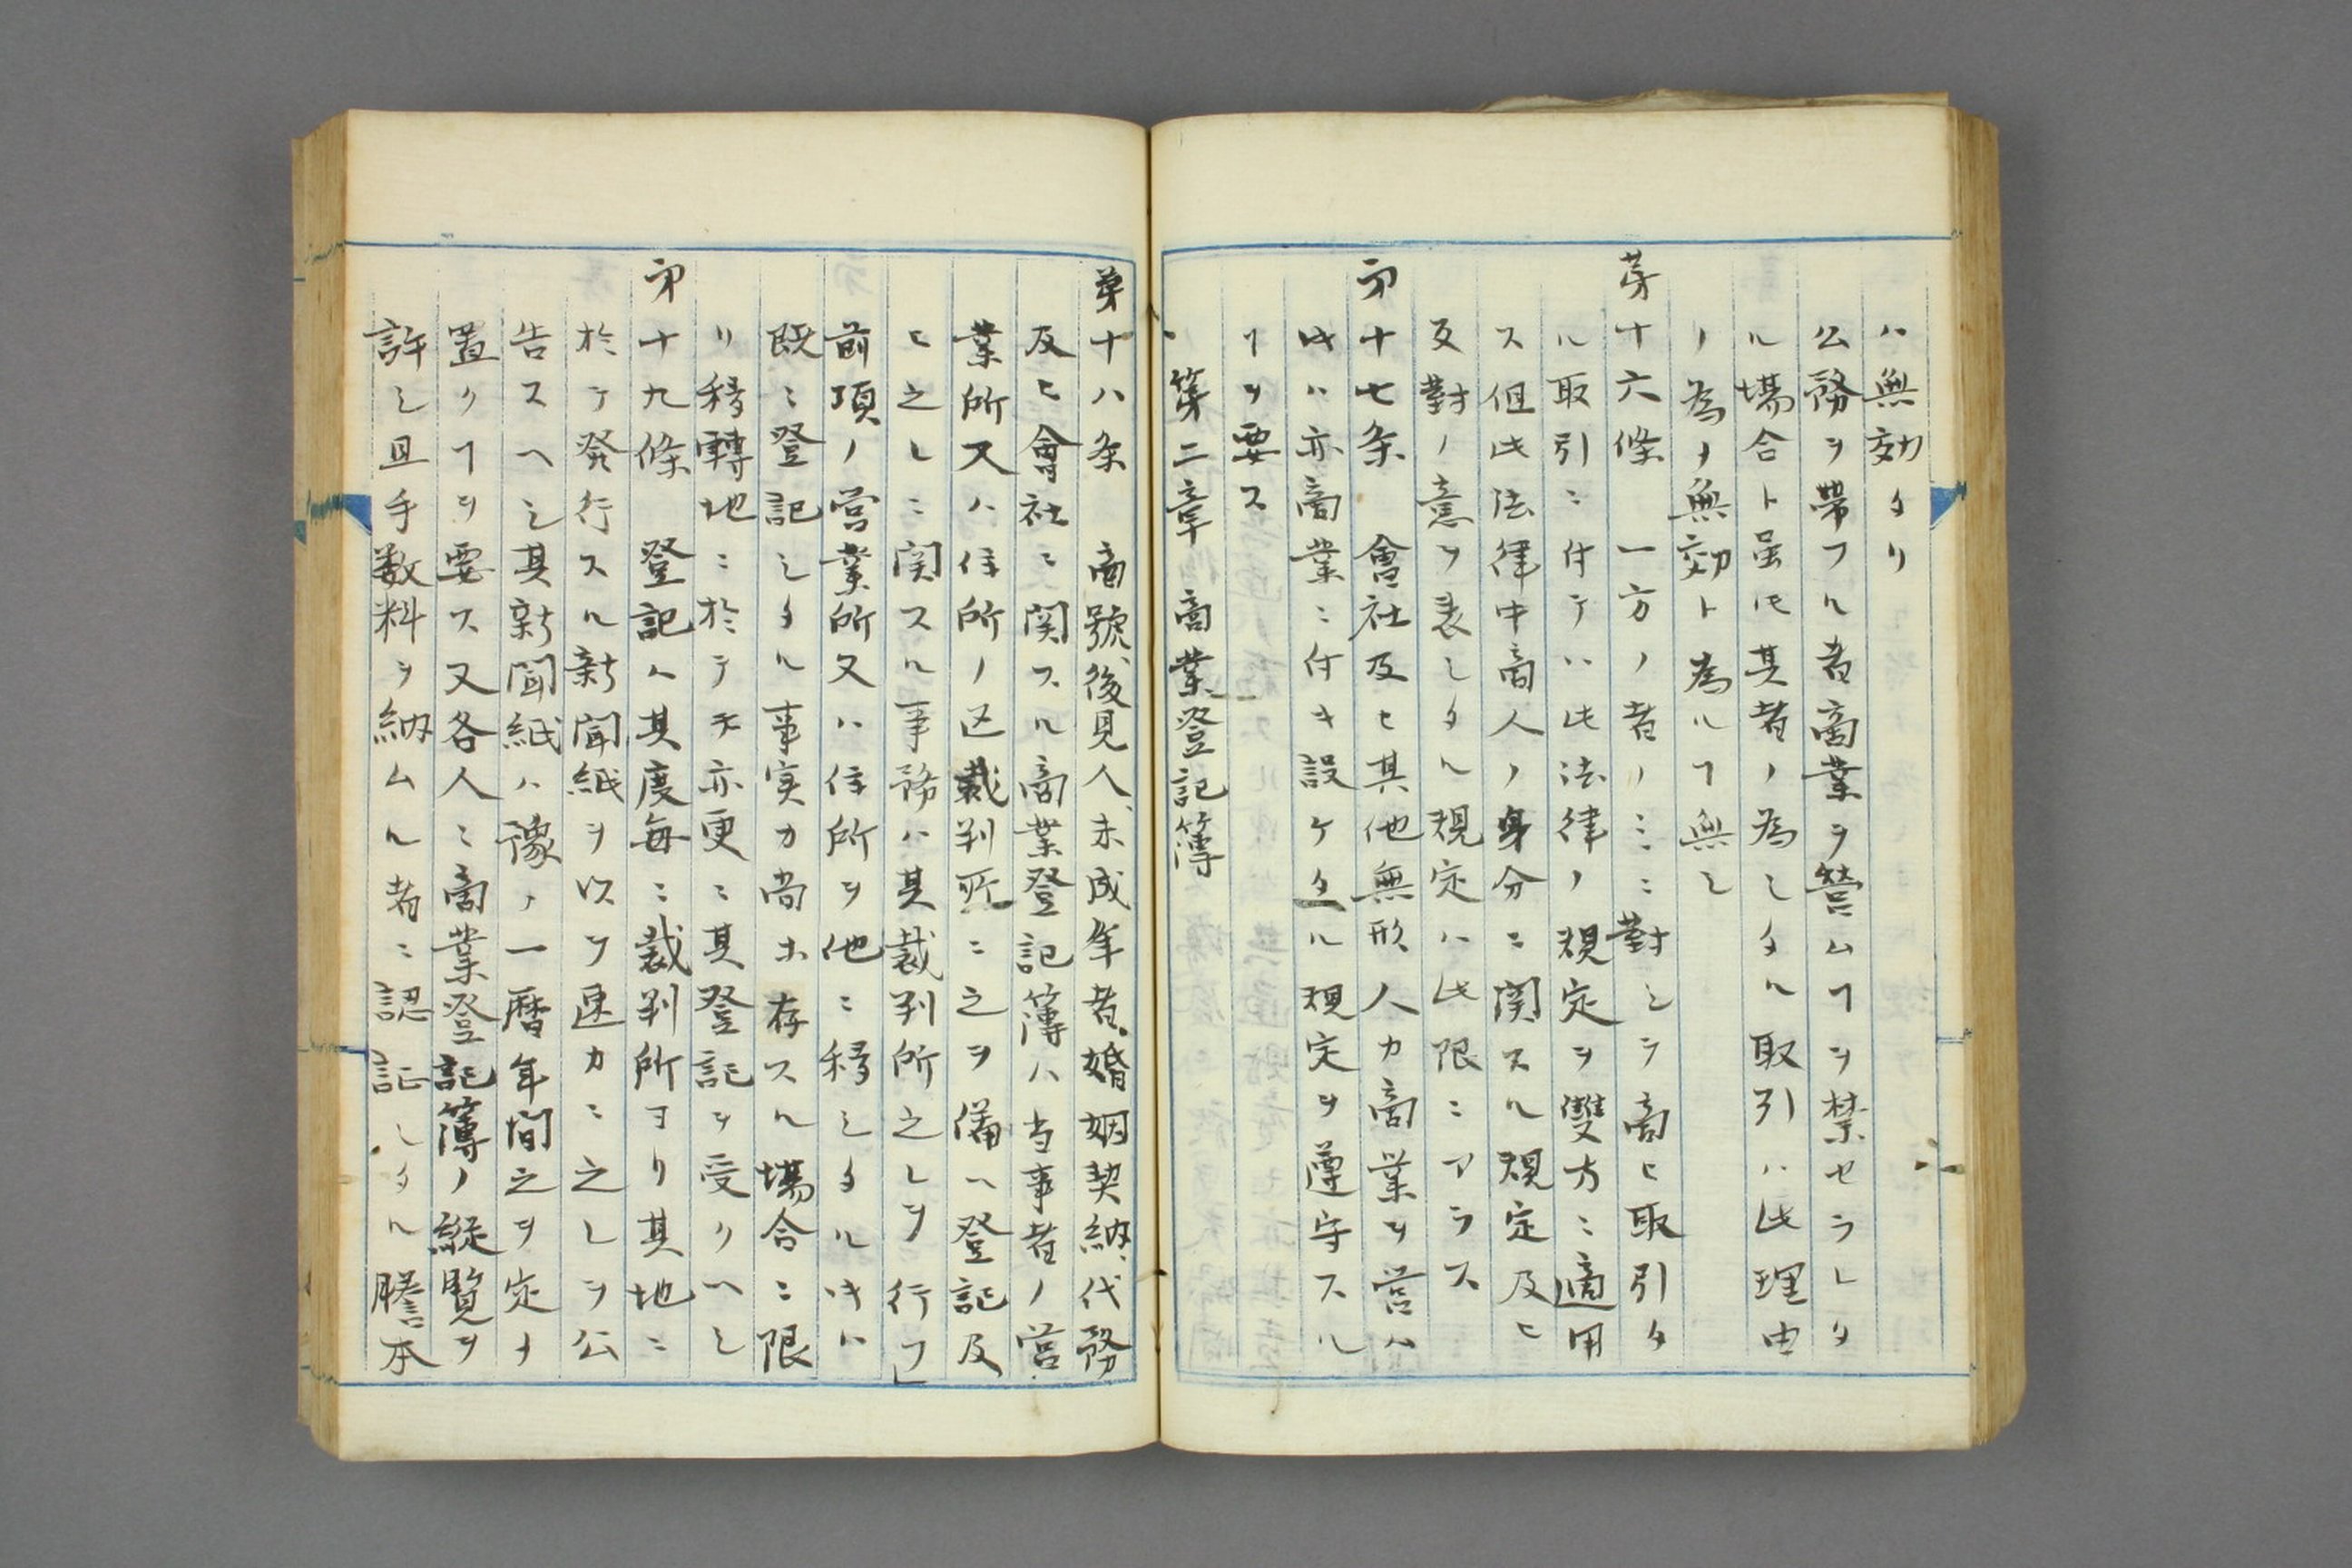 ハ無効タリ
公務ヲ帶フル者商業ヲ營ムヿヲ禁セラレタ
ル場合ト虽𪜈其者ノ為シタル取引ハ此理由
ノ為メ無効ト為ルヿ無シ
第十六條　一方ノ者ノミニ對シテ商ヒ取引タ
ル取引ニ付テハ此法律ノ規定ヲ雙方ニ適用
ス但此法律中商人ノ身分ニ関スル規定及ヒ
反對ノ意ヲ表シタル規定ハ此限ニアラス
第十七条　會社及ヒ其他無形人カ商業ヲ営ム
時ハ亦商業ニ付キ設ケタル規定ヲ遵守スル
ヿヲ要ス
第二章　商業登記簿
第十八条　商號、後見人、未成年者、婚姻契約、代務
及ヒ會社ニ関スル商業登記簿ハ当事者ノ営
業所又ハ住所ノ区裁判所ニ之ヲ備ヘ登記及
ヒ之レニ関スル事務ハ其裁判所之レヲ行フ」
前項ノ営業所又ハ住所ヲ他ニ移シタル時ハ
既ニ登記シタル事実カ尚ホ存スル場合ニ限
リ移轉地ニ於テモ亦更ニ其登記ヲ受クヘシ
第十九條　登記ハ其度毎ニ裁判所ヨリ其地ニ
於テ発行スル新聞紙ヲ以テ速カニ之レヲ公
告スヘシ其新聞紙ハ豫メ一暦年間之ヲ定メ
置クヿヲ要ス又各人ニ商業登記簿ノ縦覧ヲ
許シ且手数料ヲ納ムル者ニ認証シタル謄本